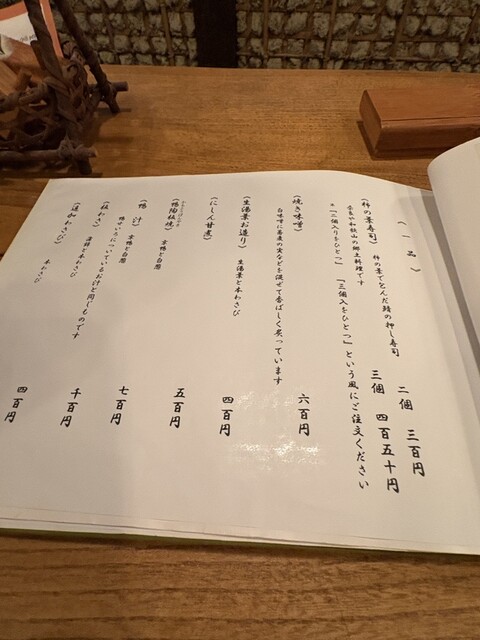 （一品）
（柿の葉寿司）　柿の葉で包んだ鯖の押し寿司　二個　三百円
奈良や和歌山の郷土料理です　三個　四百五十円
※「二個入りをひとつ」　「三個入をひとつ」という風にご注文ください
（焼き味噌）　六百円
白味噌に蕎麦の実などを混ぜて香ばしく炙っています
（生湯葉お造り）　生湯葉と本わさび　四百円
（にしん甘煮）
（鴨陶板焼）　京鴨と白葱　五百円
（鴨汁）　京鴨と白葱　七百円
鴨せいろについているお汁と同じものです
（板わさ）　蒲鉾と本わさび　千百円
（追加わさび）　本わさび　四百円